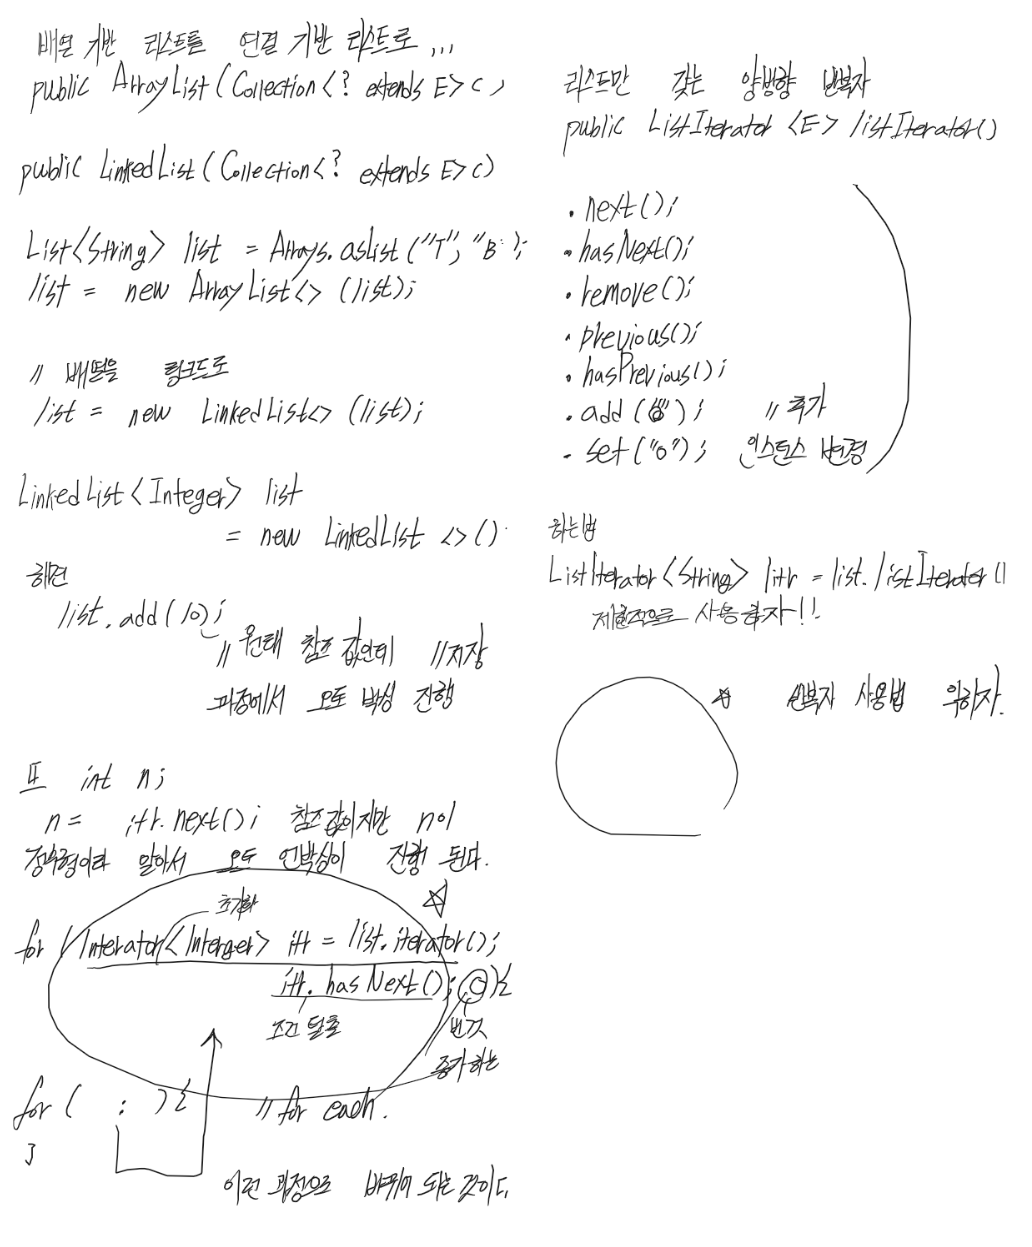 배열 기반 리스트를 연결 기반 리스트로...
public ArrayList(Collection<? extends E> c)
public LinkedList(Collection<? extends E> c)
List<String> list = Arrays.aslist("T", "B");
list = new ArrayList<> (list);
// 배열을 링크드로
list = new LinkedList<> (list);
LinkedList<Integer> list
= new LinkedList <>()
list.add(10);
// 원래 참조 값인데 //저장
과정에서 오토 박싱 진행
또 int n;
n = itr.next(); 참조값이지만 n이
정수형이라 말아서 오토 언박싱이 진행 된다.
초기화
for (Interator<Interger> itr = list.iterator();
itr.hasNext(); ){
조건 탈출
빈것
증가하는
for ( : ){ // for each.
}
이런 과정으로 바뀌어 되는 것이다.
리스트만 갖는 양방향 반복자
public ListIterator <E> listIterator()
. next();
. hasNext();
. remove();
. previous();
. hasPrevious();
. add( ); // 추가
. set("o"); 인스턴스 변경
하는법
ListIterator<String> litr = list.listIterator()
제한적으로 사용하자!!
반복자 사용법 익히자.